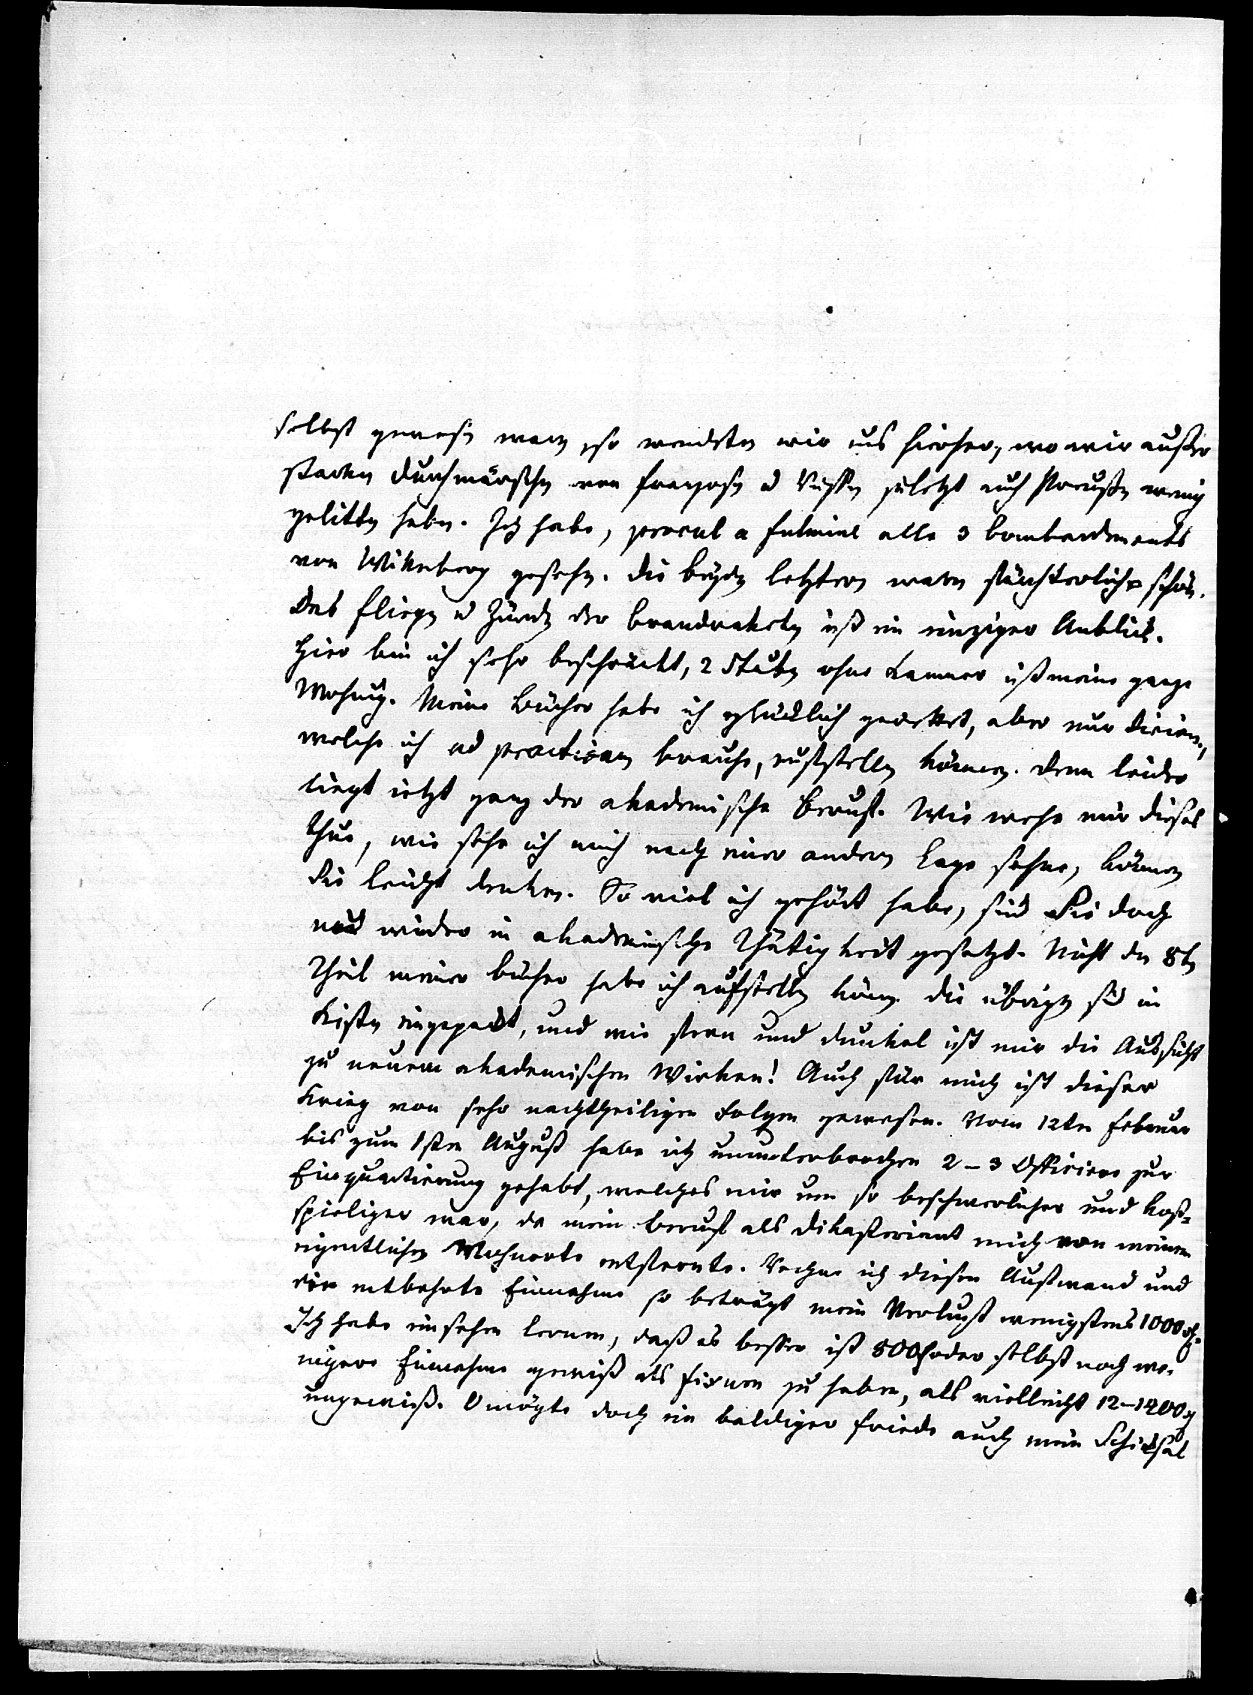 selbst gewesen waren, so wendeten wir uns hierher, wo wir außer
starken Durchmärschen von Franzosen u Russen zuletzt auch Preußen wenig
gelitten haben. Ich habe, procul a fulmine alle 3 Bombardements
von Wittenberg gesehen. Die beyden letztern waren fürchterlich schön.
Das Fliegen u Zünden der Brandraketen ist ein einziger Anblick.
Hier bin ich sehr beschränkt, 2 Stuben ohne Kammer ist meine ganze
Wohnung. Meine Bücher habe ich glücklich gerettet, aber nur diejenigen,
welche ich ad practicam brauche, aufstellen können. Denn leider
liegt jetzt ganz der akademische Beruf. Wie wehe mir dieses
thue, wie sehr ich mich nach einer andern Lage sehne, können
Sie leicht denken. So viel ich gehört habe, sind Sie doch
nun wieder in akademische Thätigkeit gesetzt. Nicht den 8ten
Theil meiner Bücher habe ich aufstellen können die übrigen sind in
Kisten eingepackt, und wie fern und dunkel ist mir die Aussicht
zu neuem akademischen Wirken! Auch für mich ist dieser
Krieg von sehr nachtheiligen Folgen gewesen. Vom 12ten Februar
bis zum 1sten August habe ich ununterbrochen 2–3 Officiere zur
Einquartierung gehabt, welches mir um so beschwerlicher und kost=
spieliger war, da mein Beruf als Dikasteriant mich von meinem
eigentlichen Wohnorte entfernte. Rechne ich diesen Aufwand und
die entbehrte Einnahme so beträgt mein Verlust wenigstens 1000 rh.
Ich habe einsehen lernen, daß es besser ist 800 oder selbst noch we=
nigere Einnahme gewiß als Fixum zu haben, als vielleicht 12–1400
ungewiß. O mögte doch ein baldiger Friede auch mein Schicksal